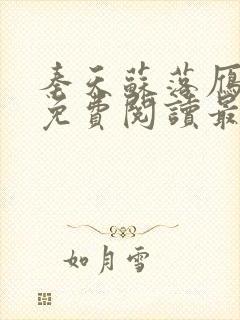 秦天蘇落雁
免費閱讀最
如月雪